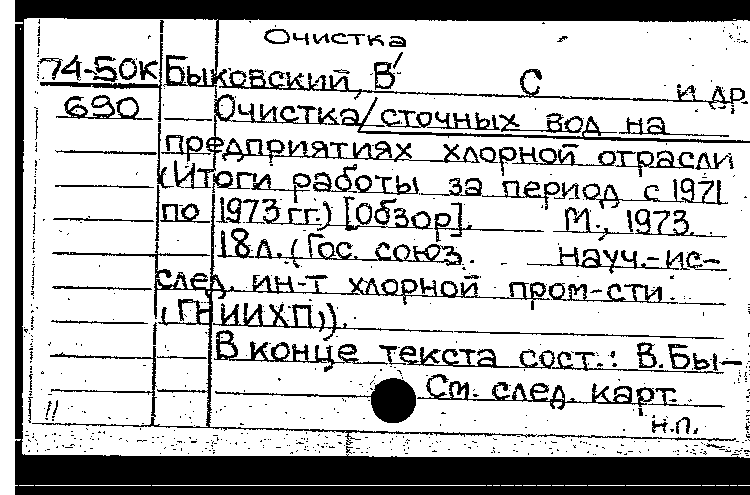 Очистка
74-50к Быковский, В С и др
690 Очистка/сточных вод на
предприятиях хлорной отрасли
(Итоги работы за период с 1971
по 1973 гг.) [Обзор]. М., 1973.
18 л. (Гос. союз. науч.-ис-
след. ин-т хлорной пром-сти.
"ГНИИХП").
В конце текста сост.: В. Бы-
См. след. карт.
11 н.п.